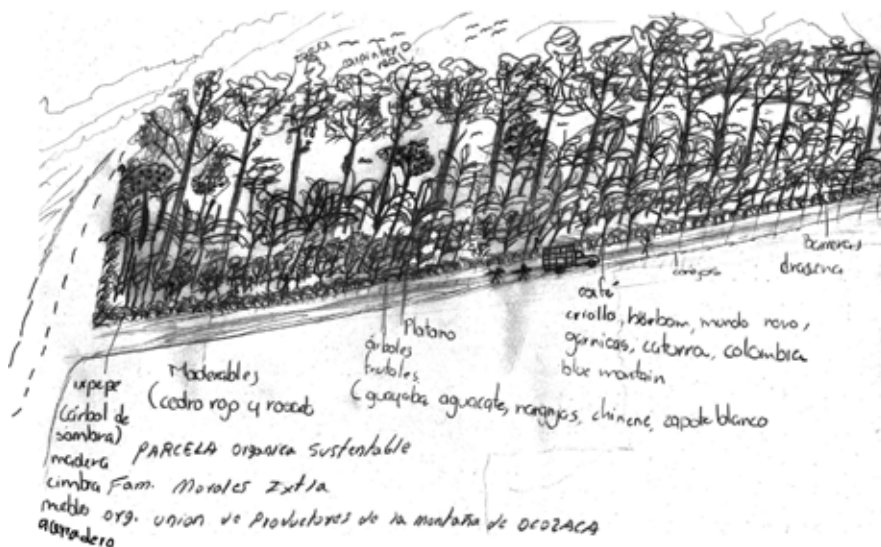 carpintero
real
Barreras
drasena
conejos
café
criollo, borbom, mundo novo,
garnicas, caturra, colombia
blue montain
Platano
árboles
frutales
(guayaba aguacate, naranjas, chinene, zapote blanco
Maderables
(cedro rojo y
ixpepe
(árbol de
sombra)
madera
cimbra
muebles
aserradero
PARCELA organica sustentable
Fam. Morales Zxtla
org. union de Productores de la montaña de OCOZACA